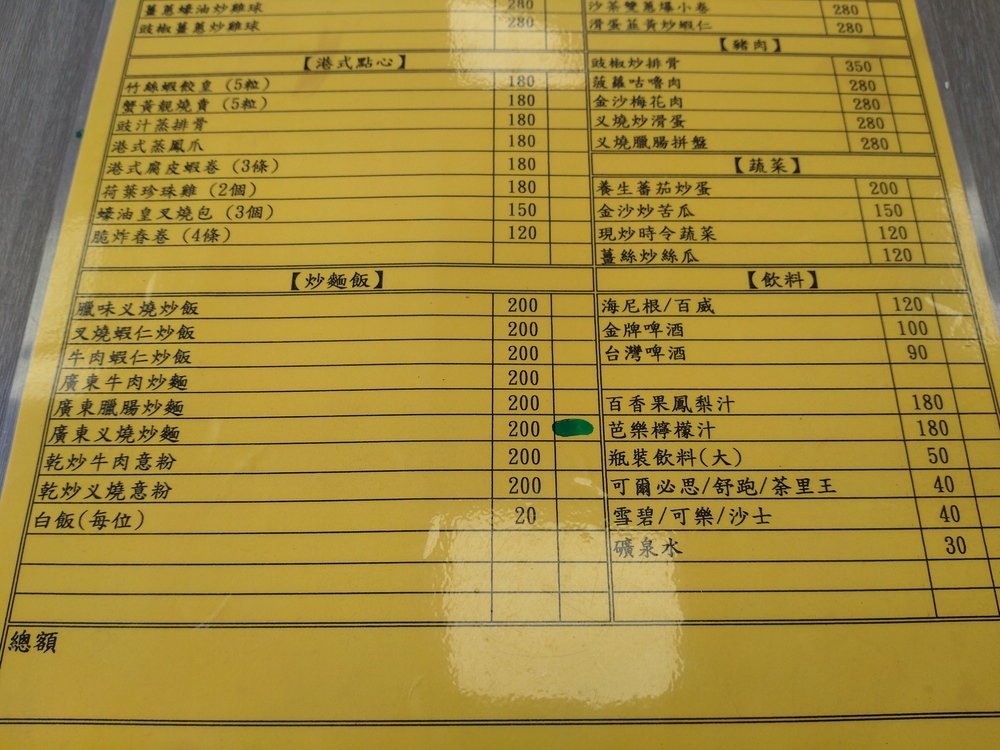 薑蔥蠔油炒雞球 280
豉椒薑蔥炒雞球 280
【港式點心】
竹絲蝦餃皇 (5粒) 180
蟹黃靚燒賣 (5粒) 180
豉汁蒸排骨 180
港式蒸鳳爪 180
港式腐皮蝦卷 (3條) 180
荷葉珍珠雞 (2個) 180
蠔油皇叉燒包 (3個) 150
脆炸春卷 (4條) 120
【炒麵飯】
臘味叉燒炒飯 200
叉燒蝦仁炒飯 200
牛肉蝦仁炒飯 200
廣東牛肉炒麵 200
廣東臘腸炒麵 200
廣東叉燒炒麵 200
乾炒牛肉意粉 200
乾炒叉燒意粉 200
白飯(每位) 20
沙茶雙蔥爆小卷 280
滑蛋韮黃炒蝦仁 280
【豬肉】
豉椒炒排骨 350
菠蘿咕嚕肉 280
金沙梅花肉 280
叉燒炒滑蛋 280
叉燒臘腸拼盤 280
【蔬菜】
養生蕃茄炒蛋 200
金沙炒苦瓜 150
現炒時令蔬菜 120
薑絲炒絲瓜 120
【飲料】
海尼根/百威 120
金牌啤酒 100
台灣啤酒 90
百香果鳳梨汁 180
芭樂檸檬汁 180
瓶裝飲料(大) 50
可爾必思/舒跑/茶里王 40
雪碧/可樂/沙士 40
礦泉水 30
總額